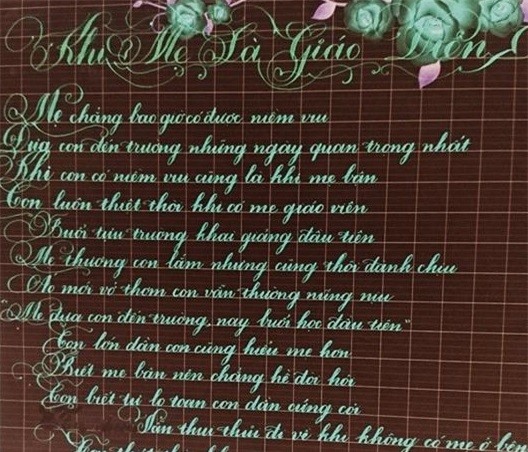 Khi Mẹ Là Giáo Viên
Mẹ chẳng bao giờ có được niềm vui
Đưa con đến trường những ngày quan trọng nhất
Khi con có niềm vui cũng là khi mẹ bận
Con luôn thiệt thòi khi có mẹ giáo viên
Buổi tựu trường khai giảng đầu tiên
Mẹ thương con lắm nhưng cũng thôi đành chịu
Áo mới vở thơm con vẫn thường nâng niu
"Mẹ đưa con đến trường, nay buổi học đầu tiên"
Con lớn dần con cũng hiểu mẹ hơn
Biết mẹ bận nên chẳng hề đòi hỏi
Con biết tự lo toan con dần cứng cỏi
Vẫn thui thủi đi về khi không có mẹ ở bên